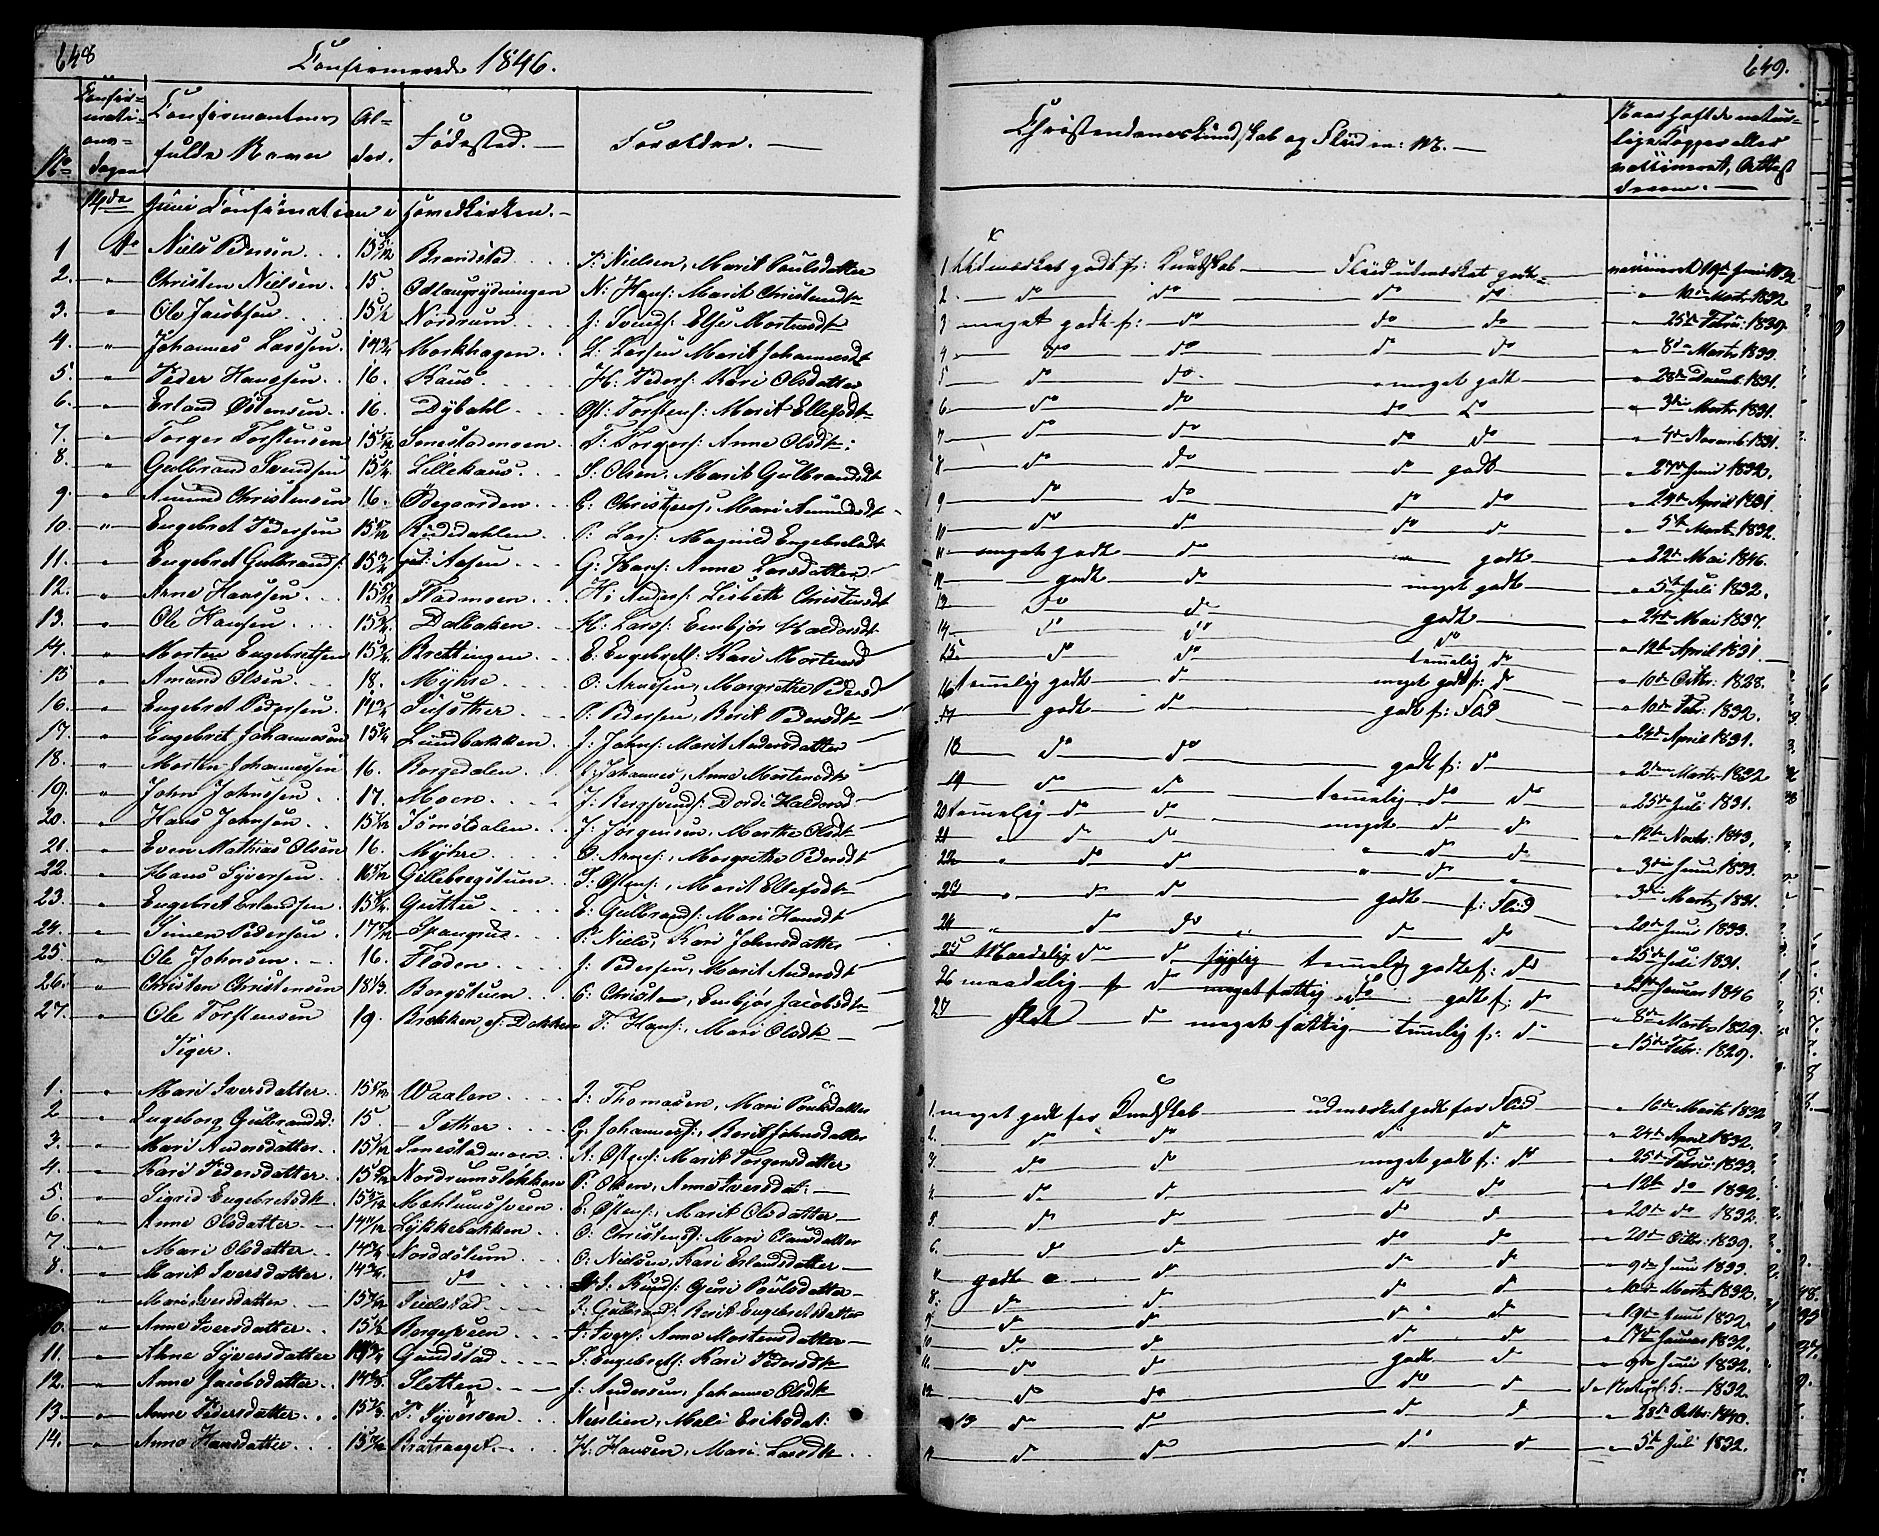 648
Confirmerede 1846.
No
Confirmations-dagen
Confirmantens fulde Navn
Alder.
Fødested.
Forældre.
14de Juni Confirmation i Hovedkirken.
1 Niels Pedersen 15 5/12 Brandstad P: Nielsen, Marit Poulsdatter
2. " Christen Nielsen 15. Odlaugrydningen N: Hans: Marit Christensdtr
3. " Ole Jacobsen 15 1/2 Nordrum J: Svends: Else Mortensdtr
4. " Johannes Larssen 14 3/4 Morkhagen L: Larsen Marit Johannesdt
5. " Peder Hanssen 16. Kaus H: Peders: Kari Olsdatter
6. " Erland Østensen 16. Dybahl Øst: Torstens: Marit Ellefsdtr
7. " Torger Torstensen Sønstadmoen T: Torgers: Anne Olsdtr:
8. " Gulbrand Svendsen 15 1/2 Lillekaus S: Olsen, Marit Gulbrandsdt
9. " Amund Christensen 16. Ødegaarden C: Christens: Mari Amundsdt
10. " Engebret Pedersen Rudsdahlen P: Lars: Magnild Engebretsdt
11. " Engebret Gulbrands: 15 3/4 Aasen G: Hans: Anne Larsdatter
12. " Arne Hanssen Fladmoen H: Anders: Lisbeth Christensdt
13. " Ole Hansen 15 3/4 Dalbakken H: Lars: Embjør Haldorsdt
14. " Morten Engebretsen 15 3/4 Brettingen E: Engebrets: Kari Mortensd
15 " Amund Olsen 18. Myhre O: Arnesen, Margrethe Pedersd
16. " Engebret Pedersen P: Pedersen, Berit Pedersdt
17. " Engebret Johannesen 15 1/4 Lundbakken J: Johns: Marit Andersdatter
18. " Morten Johannessen 16. Borgedalen J: Johannes, Anne Mortensdt
19. " John Johnsen 17. Moen J: Bergsvends: Dordi Haldorsd
20. " Hans Johnsen Tømtdalen J: Jørgensen, Marthe Olsdt
21. " Even Mathias Olsen 16. Myhre O: Arnes: Margrethe Pedersdt
22. " Hans Syversen Gillebergstuen S: Østens:, Marit Ellefsdt
23. " Engebret Erlandsen Guttu E: Gulbrands: Mari Hansdt
24. " Simen Pedersen Spangrud P: Niels, Kari Johnsdatter
25. " Ole Johnsen 16. Floden J: Pedersen, Marit Andersdt
26. " Christen Christensen 18 1/3. Borgstuen C: Christen, Embjør Jacobsdt
27. " Ole Torstensen 19. Brekken af Dokken T: Hans:, Mari Olsdt
Piger.
1. Mari Iversdatter Waalen I: Thomasen, Mari Poulsdatter
2 " Engeborg Gulbrandsd: 15. Sether G: Johanness: Berit Johnsdatter
3. " Mari Andersdatter Sønstadmoen A: Østens: Marit Torgersdatter
4. " Kari Pedersdatter 15 3/4 Nordrumsløkken P: Olsen, Anne Iversdat:
5. " Sigrid Engebretsdt Mehlumsveen E: Østens: Marit Olsdatter
6. " Anne Olsdatter Lykkebakken O: Christens: Mari Clausdatter
7. " Mari Olsdatter Norddølum O: Nielsen, Kari Erlandsdatter
8. " Marit Iversdatter do I: Knuds: Guri Poulsdatter
" Mari Iversdatter I: Gulbrands: Berit Engebretsdatter
10. " Anne Iversdatter Borgesveen I: Ivers: Anne Mortensdatter
11. " Anne Syversdatter Gundstad S: Engebrets: Kari Pedersdt
12. " Anne Jacobsdatter Sletten J: Anderssen, Johanne Olsdt
13. " Anne Pedersdatter P. Syversen Nerlien, Meli Eriksdat:
14. " Anne Hansdatter Bratvæget H: Hansen, Mari Larsdt

649.
Christendomskundskab og Flid m: M.
Naar havt de naturlige Kopper eller vaccineret, Attest derom.
1 Udmærket godt f: Kundskab Flid udmærket godt vaccineret 19de Juni 1832
2. do do do do " 10de Marts 1832
3 meget godt f: do do do " 25de Febru: 1839.
4 do do do do " 8de Marts 1833.
5 do do meget godt " 28de Decemb: 1831.
6 do do do do " 3die Marts 1831.
7 do do do do " 4de Novemb: 1831.
8 do do do godt " 27de Juni 1832.
9 do do do do " 24de April 1831.
10 do do do do " 5te Marts 1832.
11 meget godt do " godt " 22de Mai 1846.
12 godt do meget godt " 5te Juli 1832.
13 do do godt " 24de Mai 1837.
14 do do do " 12te April 1831.
15. do do temelig do " 10de Octbr: 1828.
16 temelig godt do meget godt f: do " 10de Febr: 1832.
17 godt do godt f: Flid " 24de April 1831.
18 do do godt f: do " 2den Marts 1832
19 do do temelig do do " 25de Juli 1831.
20 temelig do do meget do do " 12te Novbr: 1843.
21 " do do " do do " 3die Juni 1833.
22 " do do " do " " 3die Marts 1831.
23 " do do godt f: Flid " 20de Juni 1833.
24 " do do do do " 25de Juli 1831.
25 Maadelig do do temelig godt f: do Januar 1846
26 maadelig f do meget fattig do godt f: do " 8de Marts 1829.
27 slet do meget fattig temelig f: do " 15de Febr: 1829.
1. meget godt for Kundskab udmærket godt for Flid " 16de Marts 1832
2. do do do do " 24de April 1832.
3. do do meget godt f: do " 25de Febru: 1833.
4 do do do do " 12te do 1832.
5. do do do do " 20de do 1832.
6. do do do do " 20de Octbr: 1839.
godt do do do " 9de Juni 1833.
8. do do do do " 10de Marts 1832.
9 do do do do " 19de Juni 1832.
10 do do do do " 17de Januar 1832.
11. do do godt do " 9de Juni 1832.
12 do do do do 1832.
13 do do do do " 28de Octbr: 1840.
14 do do do do " 5te Juli 1832.